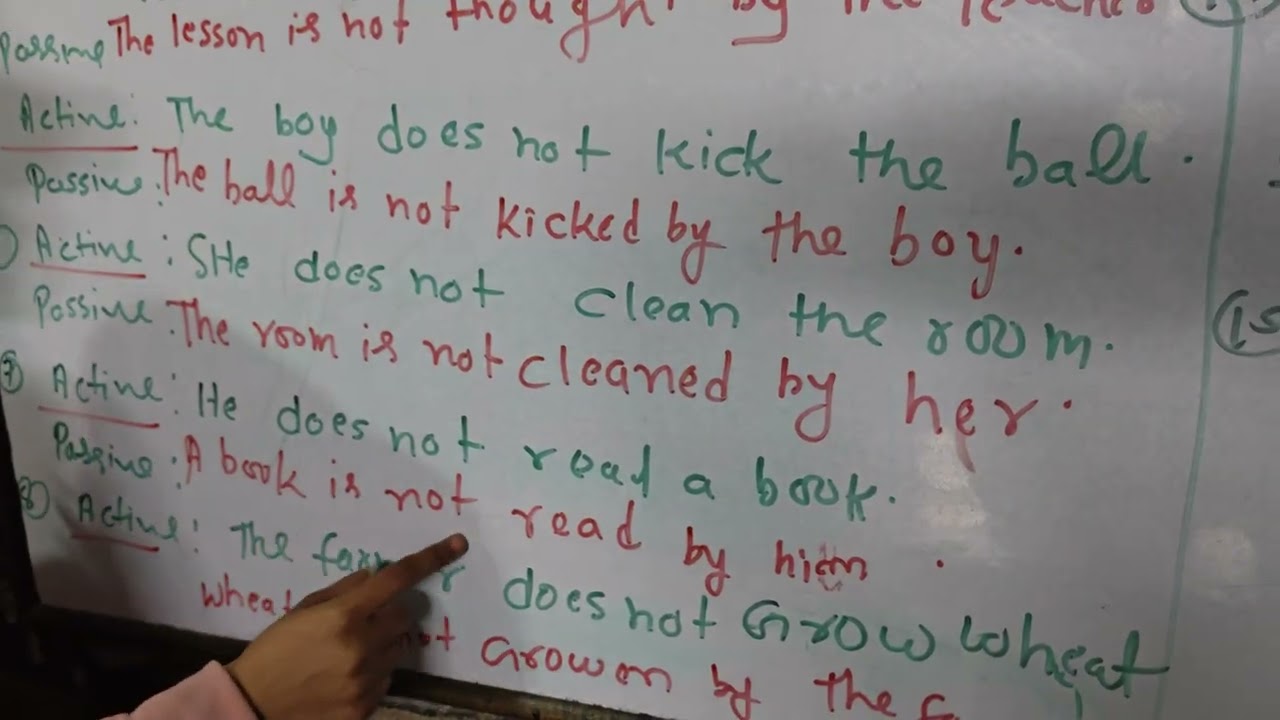 Passive The lesson is not thought by the
Active: The boy does not kick the ball.
Passive: The ball is not kicked by the boy.
Active: SHe does not clean the room.
Passive: The room is not cleaned by her.
7 Active: He does not read a book.
Passive: A book is not read by him.
8) Active: The farmer does not Grow wheat
wheat not Growen by the f
(15